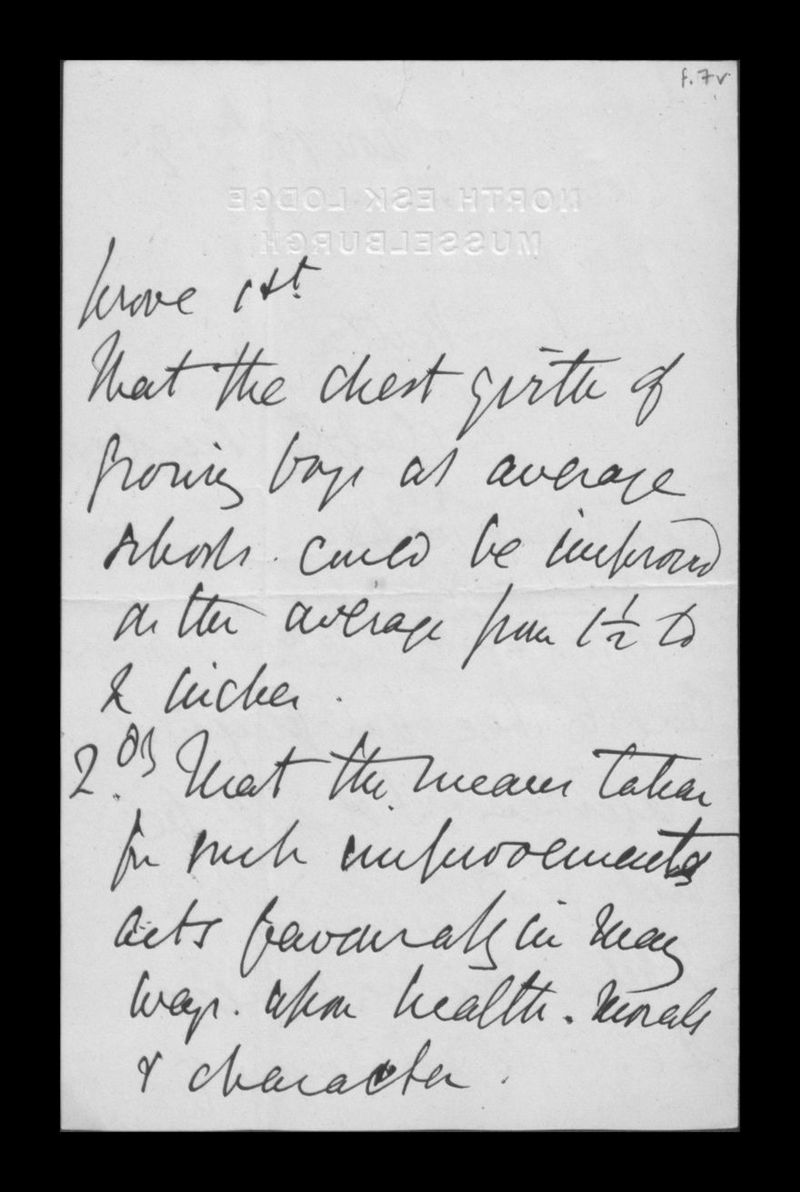 f.7v
NORTH ESK LODGE
MUSSELBURGH
prove 1st
That the chest girth of
growing boys at average
schools. could be improved
on the average from 1½ to
2 inches.
2nd. That the means taken
for such improvements
acts favourably in many
ways. upon health. morals
& character.